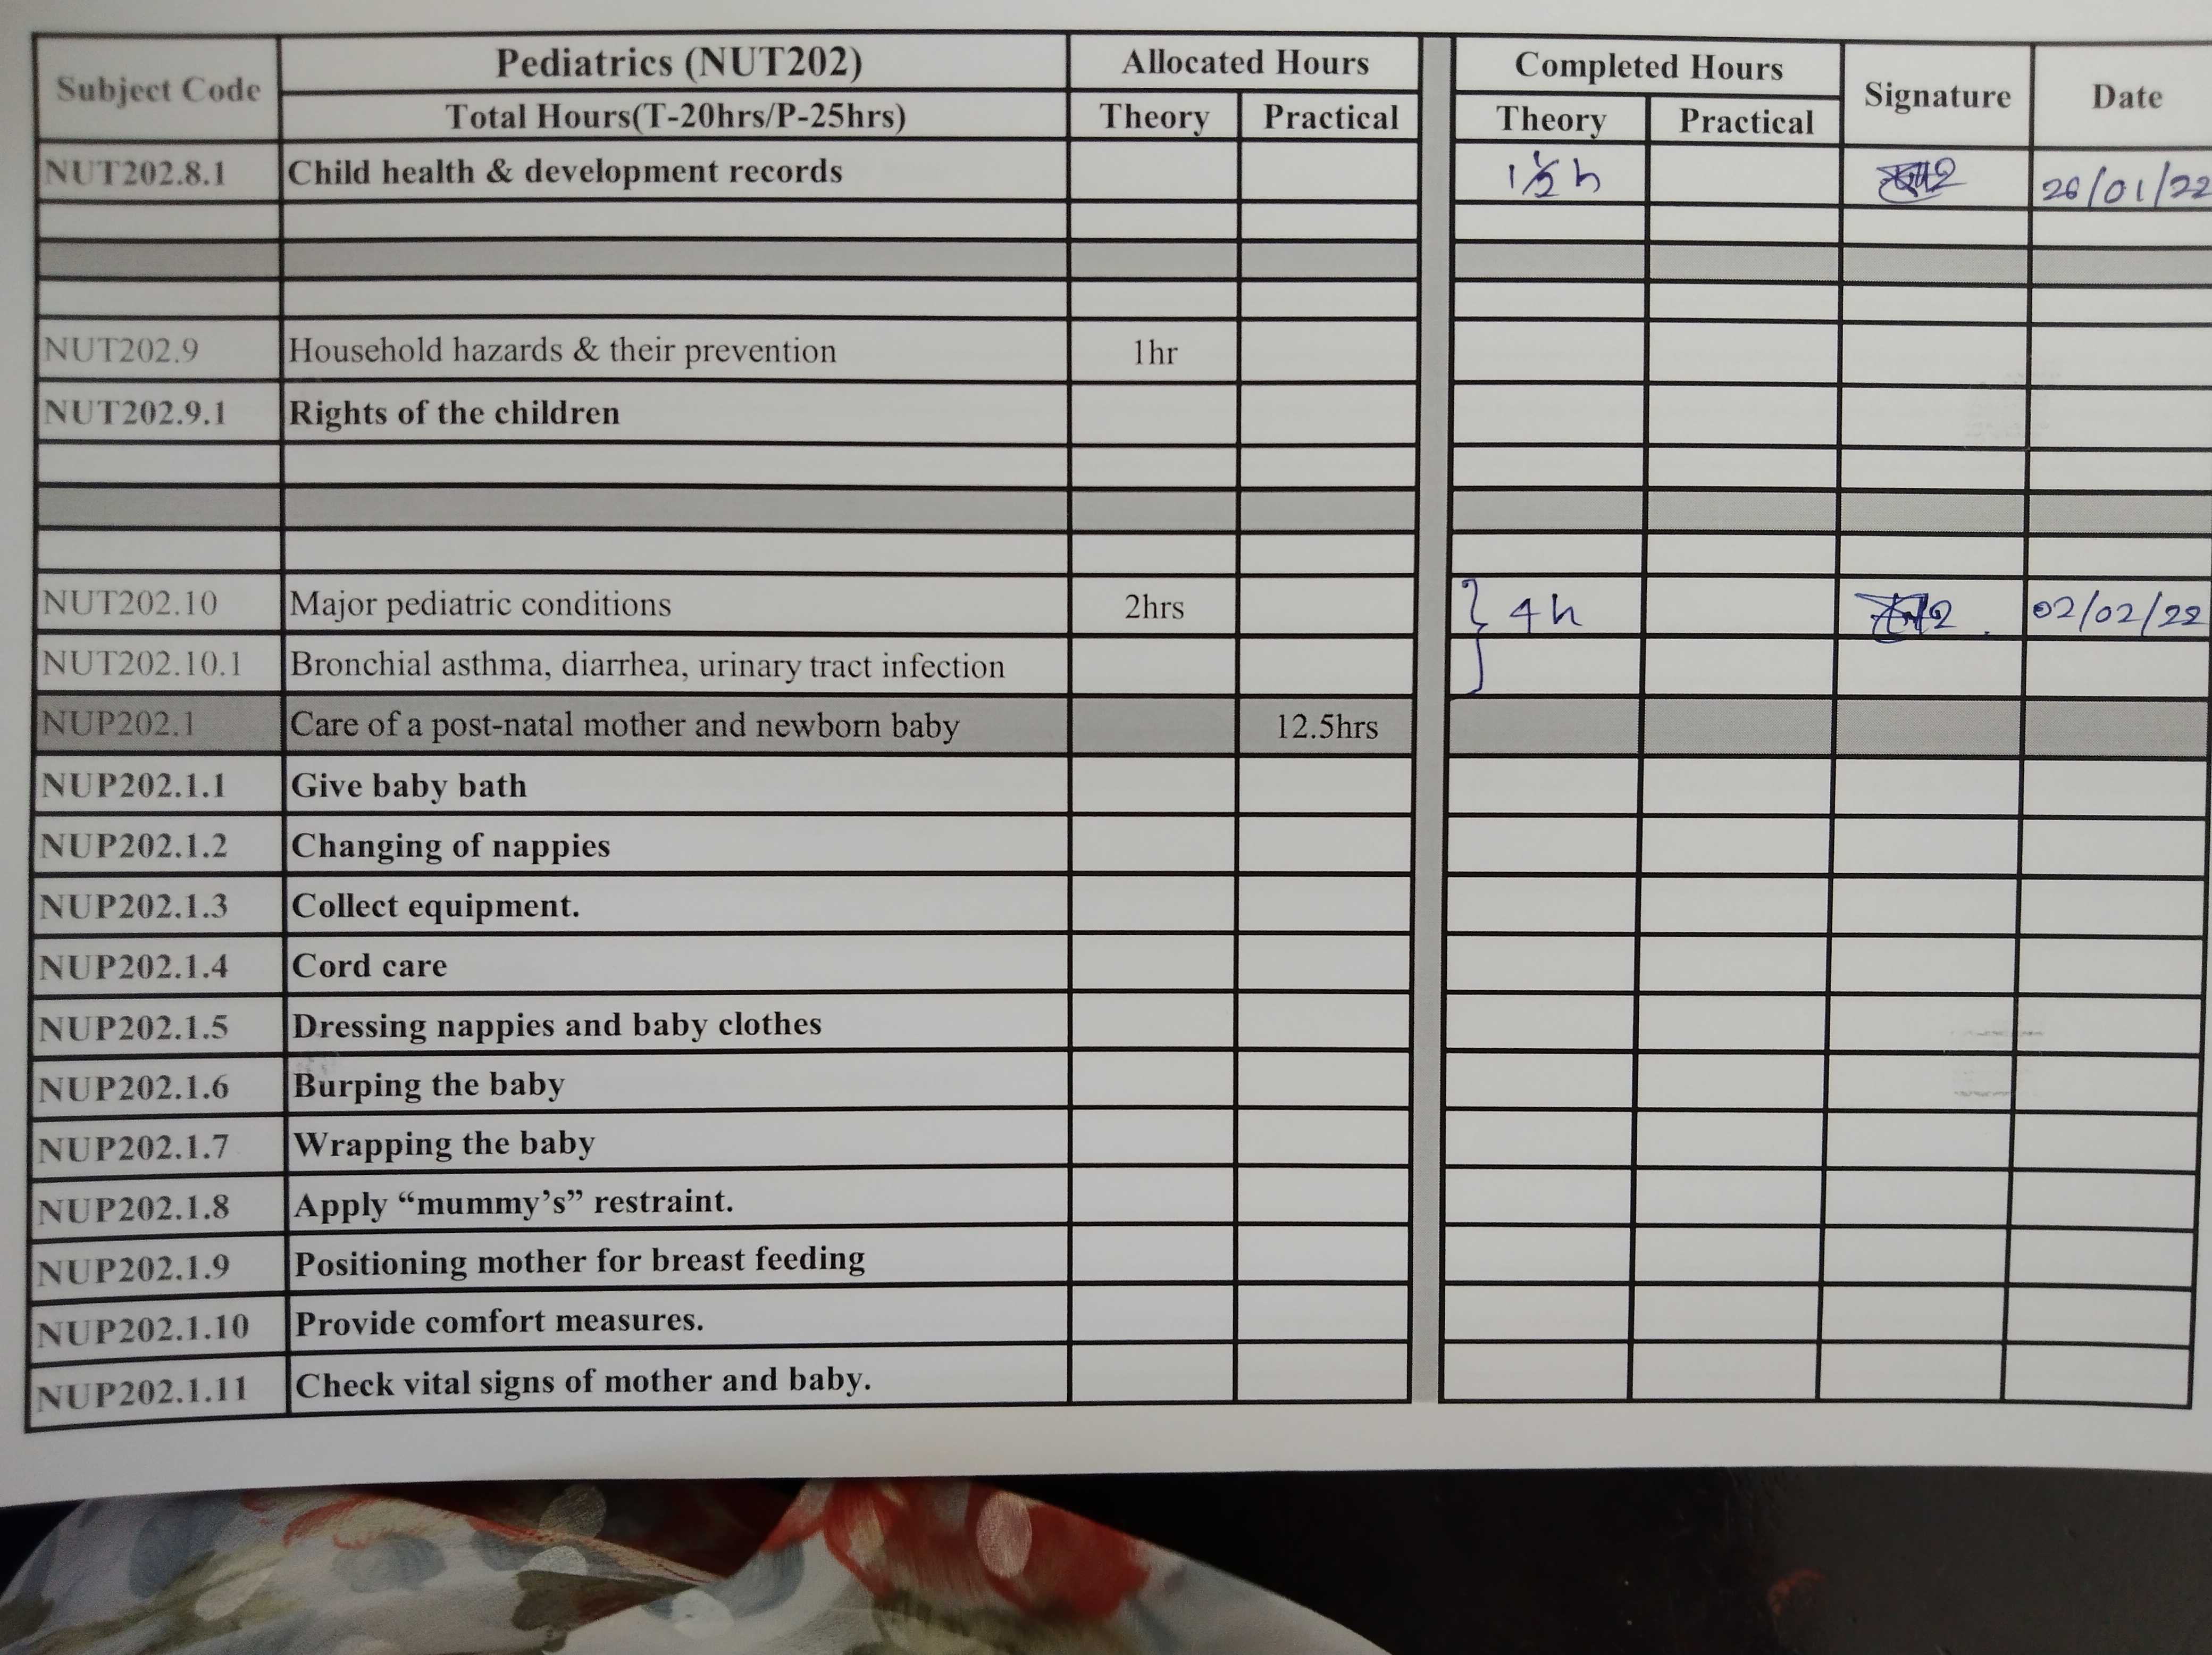 Subject Code Pediatrics (NUT202) Allocated Hours Completed Hours Signature Date
Total Hours(T-20hrs/P-25hrs) Theory Practical Theory Practical
NUT202.8.1 Child health & development records 1½ h 26/01/22
NUT202.9 Household hazards & their prevention 1hr
NUT202.9.1 Rights of the children
NUT202.10 Major pediatric conditions 2hrs 4 h 02/02/22
NUT202.10.1 Bronchial asthma, diarrhea, urinary tract infection
NUP202.1 Care of a post-natal mother and newborn baby 12.5hrs
NUP202.1.1 Give baby bath
NUP202.1.2 Changing of nappies
NUP202.1.3 Collect equipment.
NUP202.1.4 Cord care
NUP202.1.5 Dressing nappies and baby clothes
NUP202.1.6 Burping the baby
NUP202.1.7 Wrapping the baby
NUP202.1.8 Apply “mummy’s” restraint.
NUP202.1.9 Positioning mother for breast feeding
NUP202.1.10 Provide comfort measures.
NUP202.1.11 Check vital signs of mother and baby.